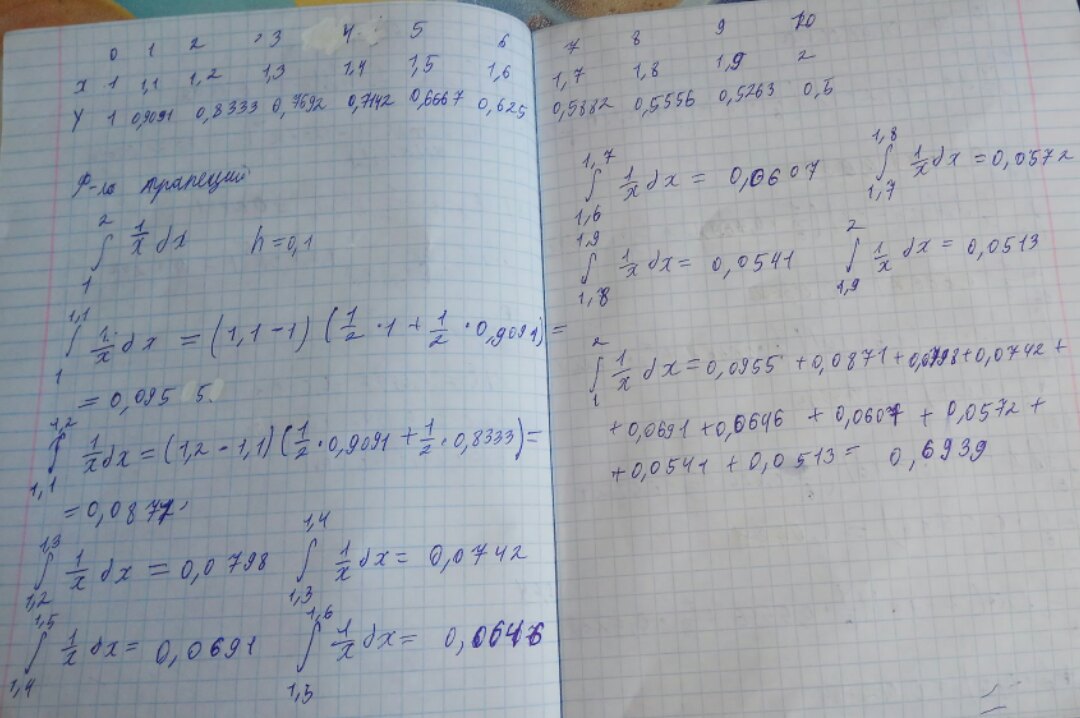 0 1 2 3 4 5 6
x 1 1,1 1,2 1,3 1,4 1,5 1,6
y 1 0,9091 0,8333 0,7692 0,7142 0,6667 0,625
Ф-ла трапеций
∫₁² 1/x dx h=0,1
∫₁^1,1 1/x dx = (1,1-1) (1/2 · 1 + 1/2 · 0,9091) =
= 0,0955
∫₁,₁^1,2 1/x dx = (1,2-1,1) (1/2 · 0,9091 + 1/2 · 0,8333) =
= 0,0871
∫₁,₂^1,3 1/x dx = 0,0798 ∫₁,₃^1,4 1/x dx = 0,0742
∫₁,₄^1,5 1/x dx = 0,0691 ∫₁,₅^1,6 1/x dx = 0,0646
7 8 9 10
1,7 1,8 1,9 2
0,5882 0,5556 0,5263 0,5
∫₁,₆^1,7 1/x dx = 0,0607 ∫₁,₇^1,8 1/x dx = 0,0572
∫₁,₈^1,9 1/x dx = 0,0541 ∫₁,₉^2 1/x dx = 0,0513
∫₁² 1/x dx = 0,0955 + 0,0871 + 0,0798 + 0,0742 +
+ 0,0691 + 0,0646 + 0,0607 + 0,0572 +
+ 0,0541 + 0,0513 = 0,6939